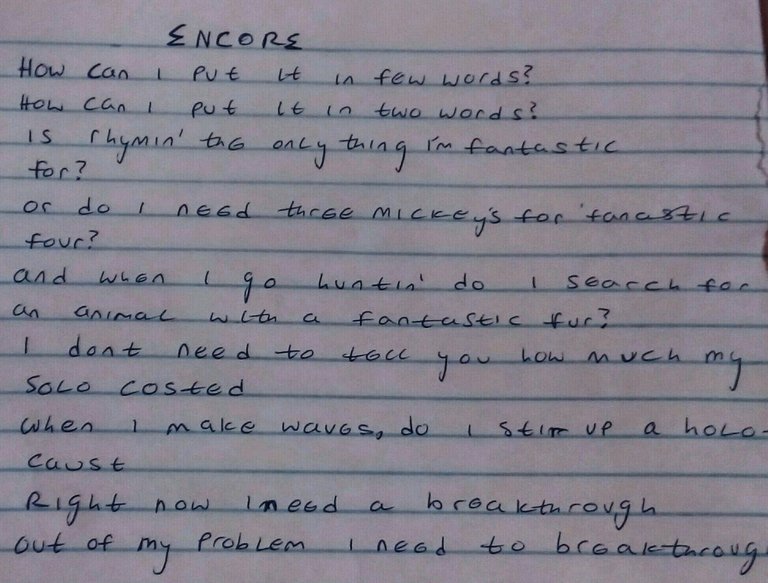 ENCORE
How can I put it in few words?
How can I put it in two words?
Is rhymin' the only thing i'm fantastic
for?
or do I need three mickey's for fanastic
four?
and when I go huntin' do I search for
an animal with a fantastic fur?
I dont need to tell you how much my
solo costed
when I make waves, do I stir up a holo-
caust
Right now I need a breakthrough
out of my problem I need to breakthroug